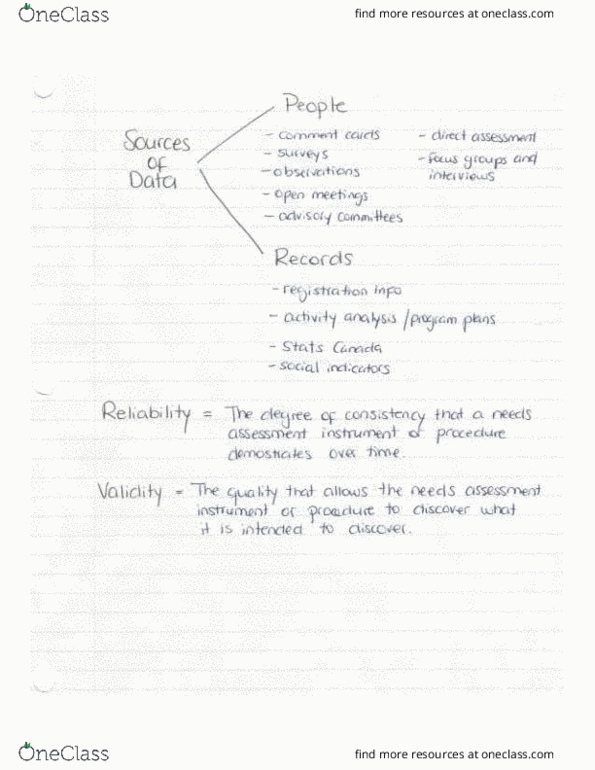 OneClass
find more resources at oneclass.com
People
Sources
of
Data
- comment cards
- surveys
- observations
- open meetings
- advisory committees
- direct assessment
- Focus groups and
interviews
Records
- registration info
- activity analysis / program plans
- Stats Canada
- social indicators
Reliability = The degree of consistency that a needs
assessment instrument of procedure
demostrates over time.
Validity = The quality that allows the needs assessment
instrument or procedure to discover what
it is intended to discover.
OneClass
find more resources at oneclass.com